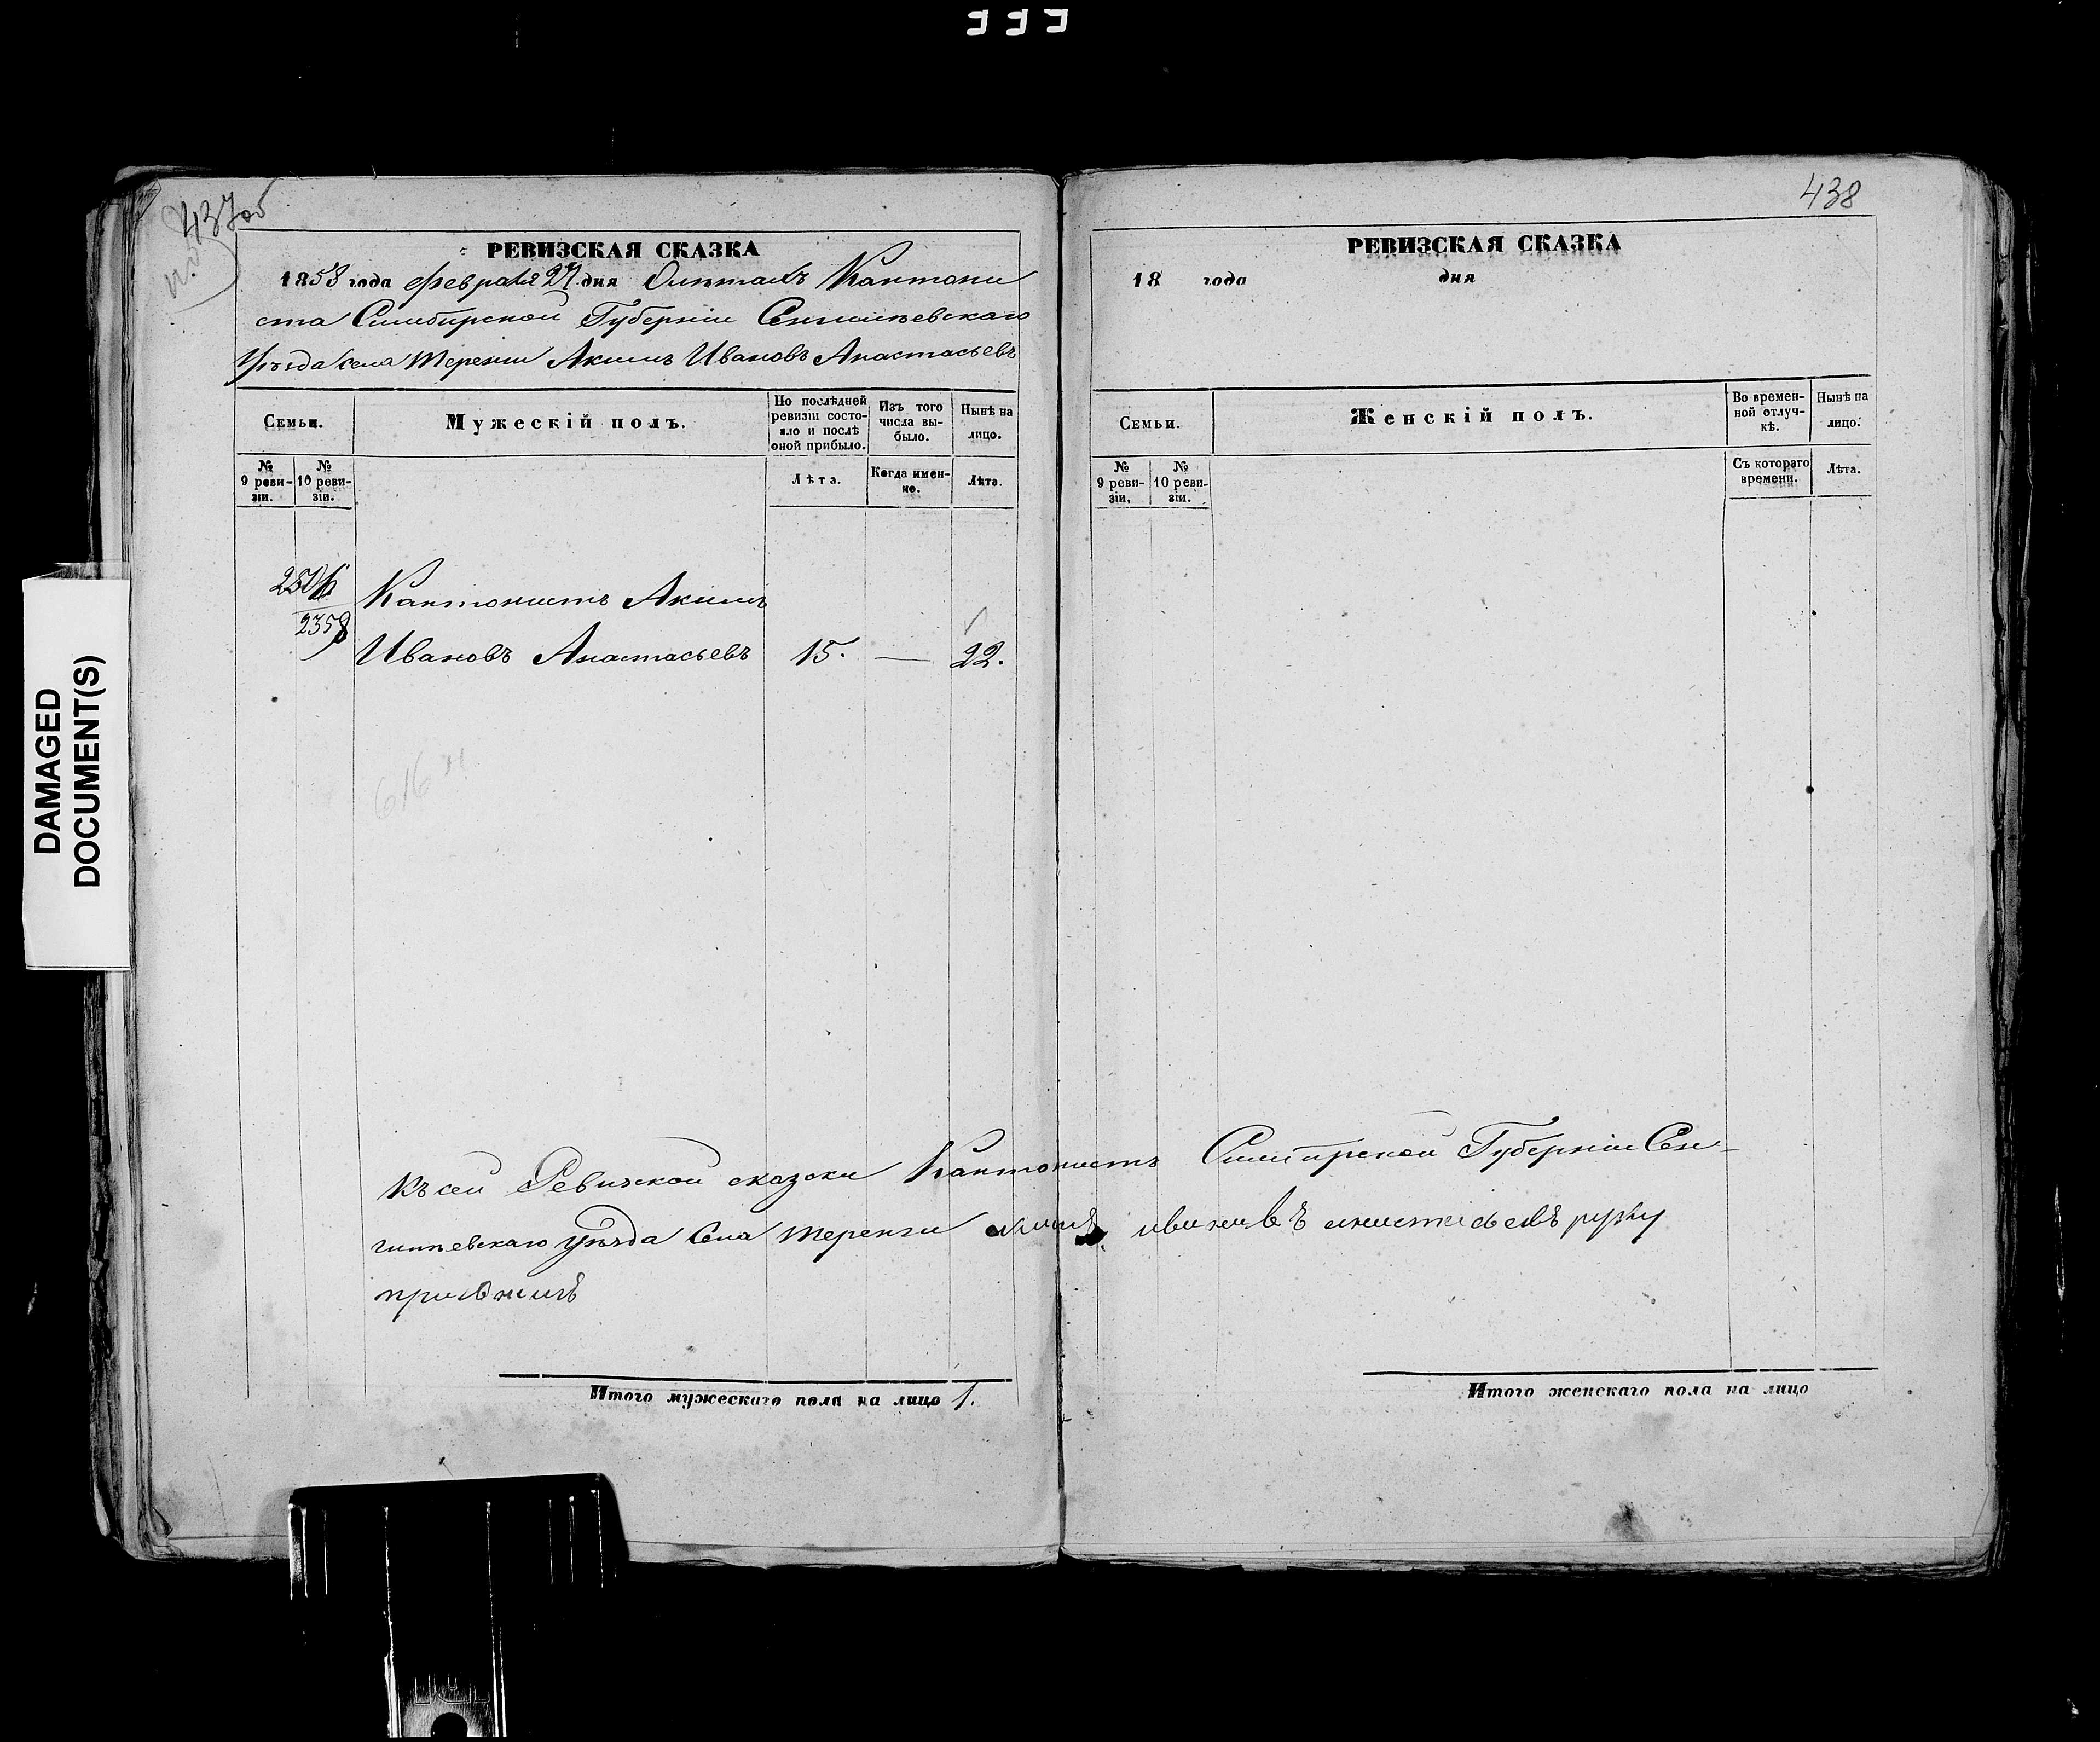 437об
438
РЕВИЗСКАЯ СКАЗКА
1858 года февраля 27 дня Кантони
ста Симбирской Губерніи Сенгилѣевскаго
Уѣзда села Тереньги Акимъ Ивановъ Анастасьевъ
Семьи.
Мужескій полъ.
По послѣдней
ревизіи состо-
яло и послѣ
оной прибыло.
Изъ того
числа вы-
было.
Нынѣ на
лицо.
№
9 реви-
зіи.
№
10 реви-
зіи.
Лѣта.
Когда имен-
но.
Лѣта.
2358
Кантонистъ Акимъ
Ивановъ Анастасьевъ 15. — 22.
616
Къ сей Ревижской сказки Кантонистъ Симбирской Губерніи Сен-
гилѣевскаго уѣзда Села Тереньги акимъ ивановъ анастасьевъ руку
приложилъ
Итого мужескаго пола на лицо 1.
РЕВИЗСКАЯ СКАЗКА
18 года дня
Семьи.
Женскій полъ.
Во времен-
ной отлуч-
кѣ.
Нынѣ на
лицо.
№
9 реви-
зіи.
№
10 реви-
зіи.
Съ котораго
времени.
Лѣта.
Итого женскаго пола на лицо
DAMAGED
DOCUMENT(S)